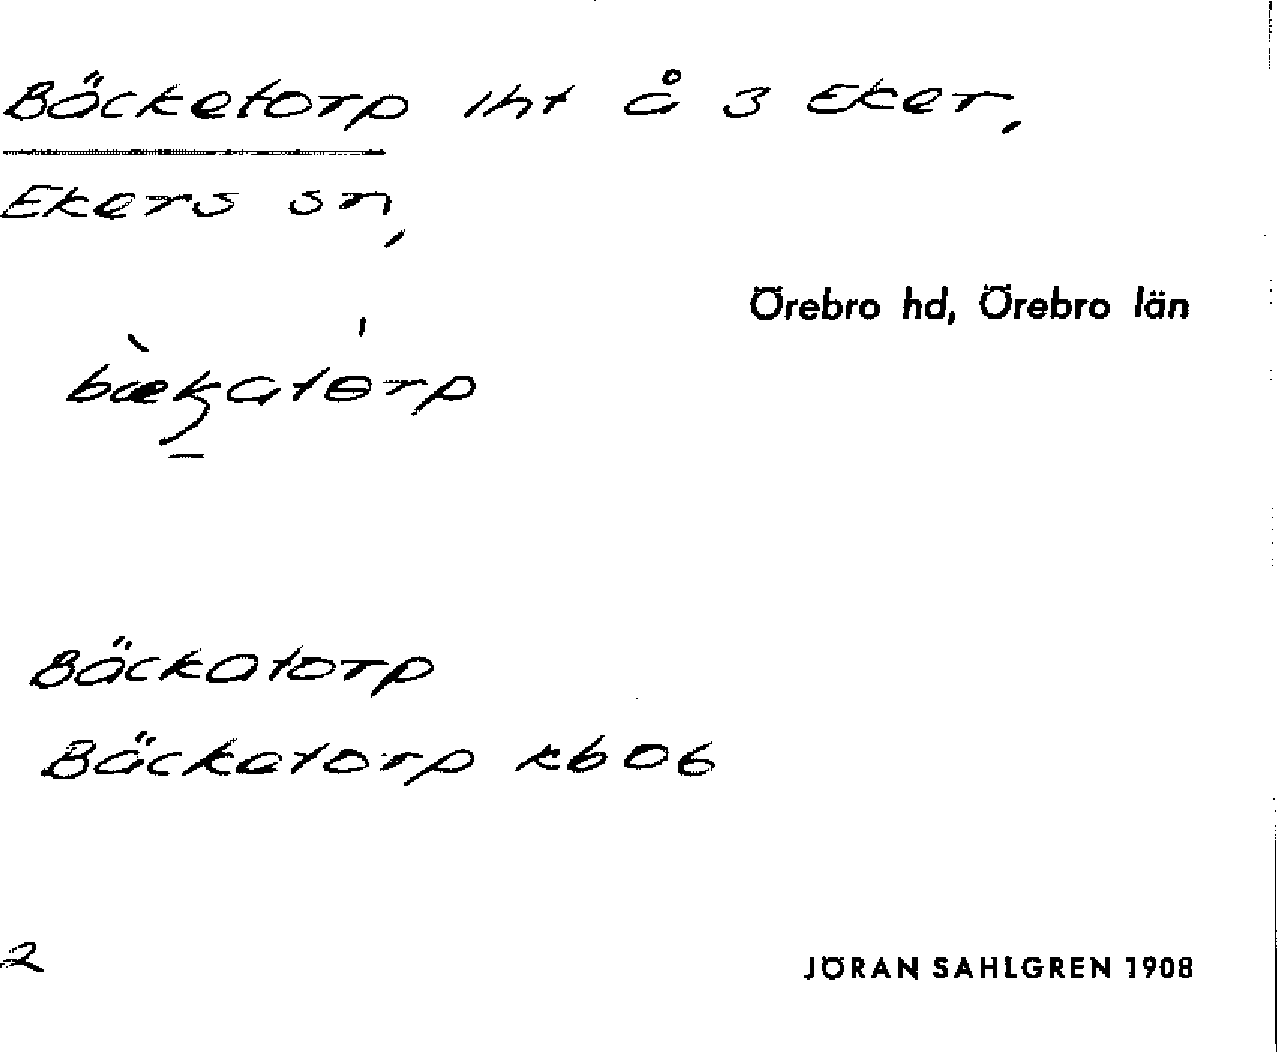 Bäcketorp lht å 3 Eker,
Ekers sn,
Örebro hd, Örebro län
bæ̀katɵ́rp
Bäckatorp
Bäckatorp kb 06
2
JÖRAN SAHLGREN 1908